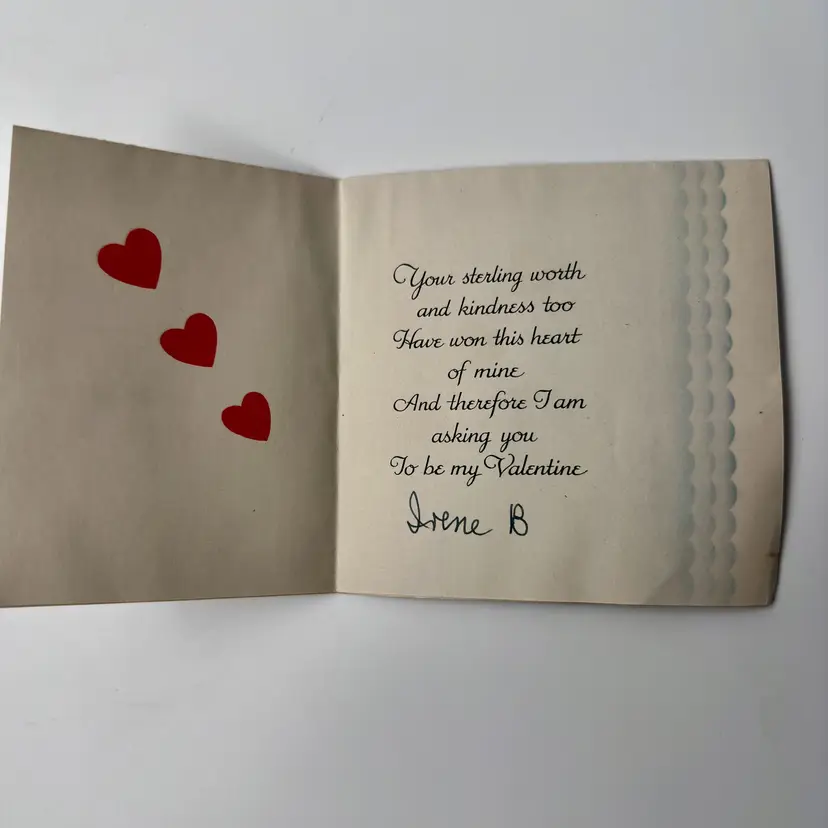 Your sterling worth
and kindness too
Have won this heart
of mine
And therefore I am
asking you
To be my Valentine
Irene B